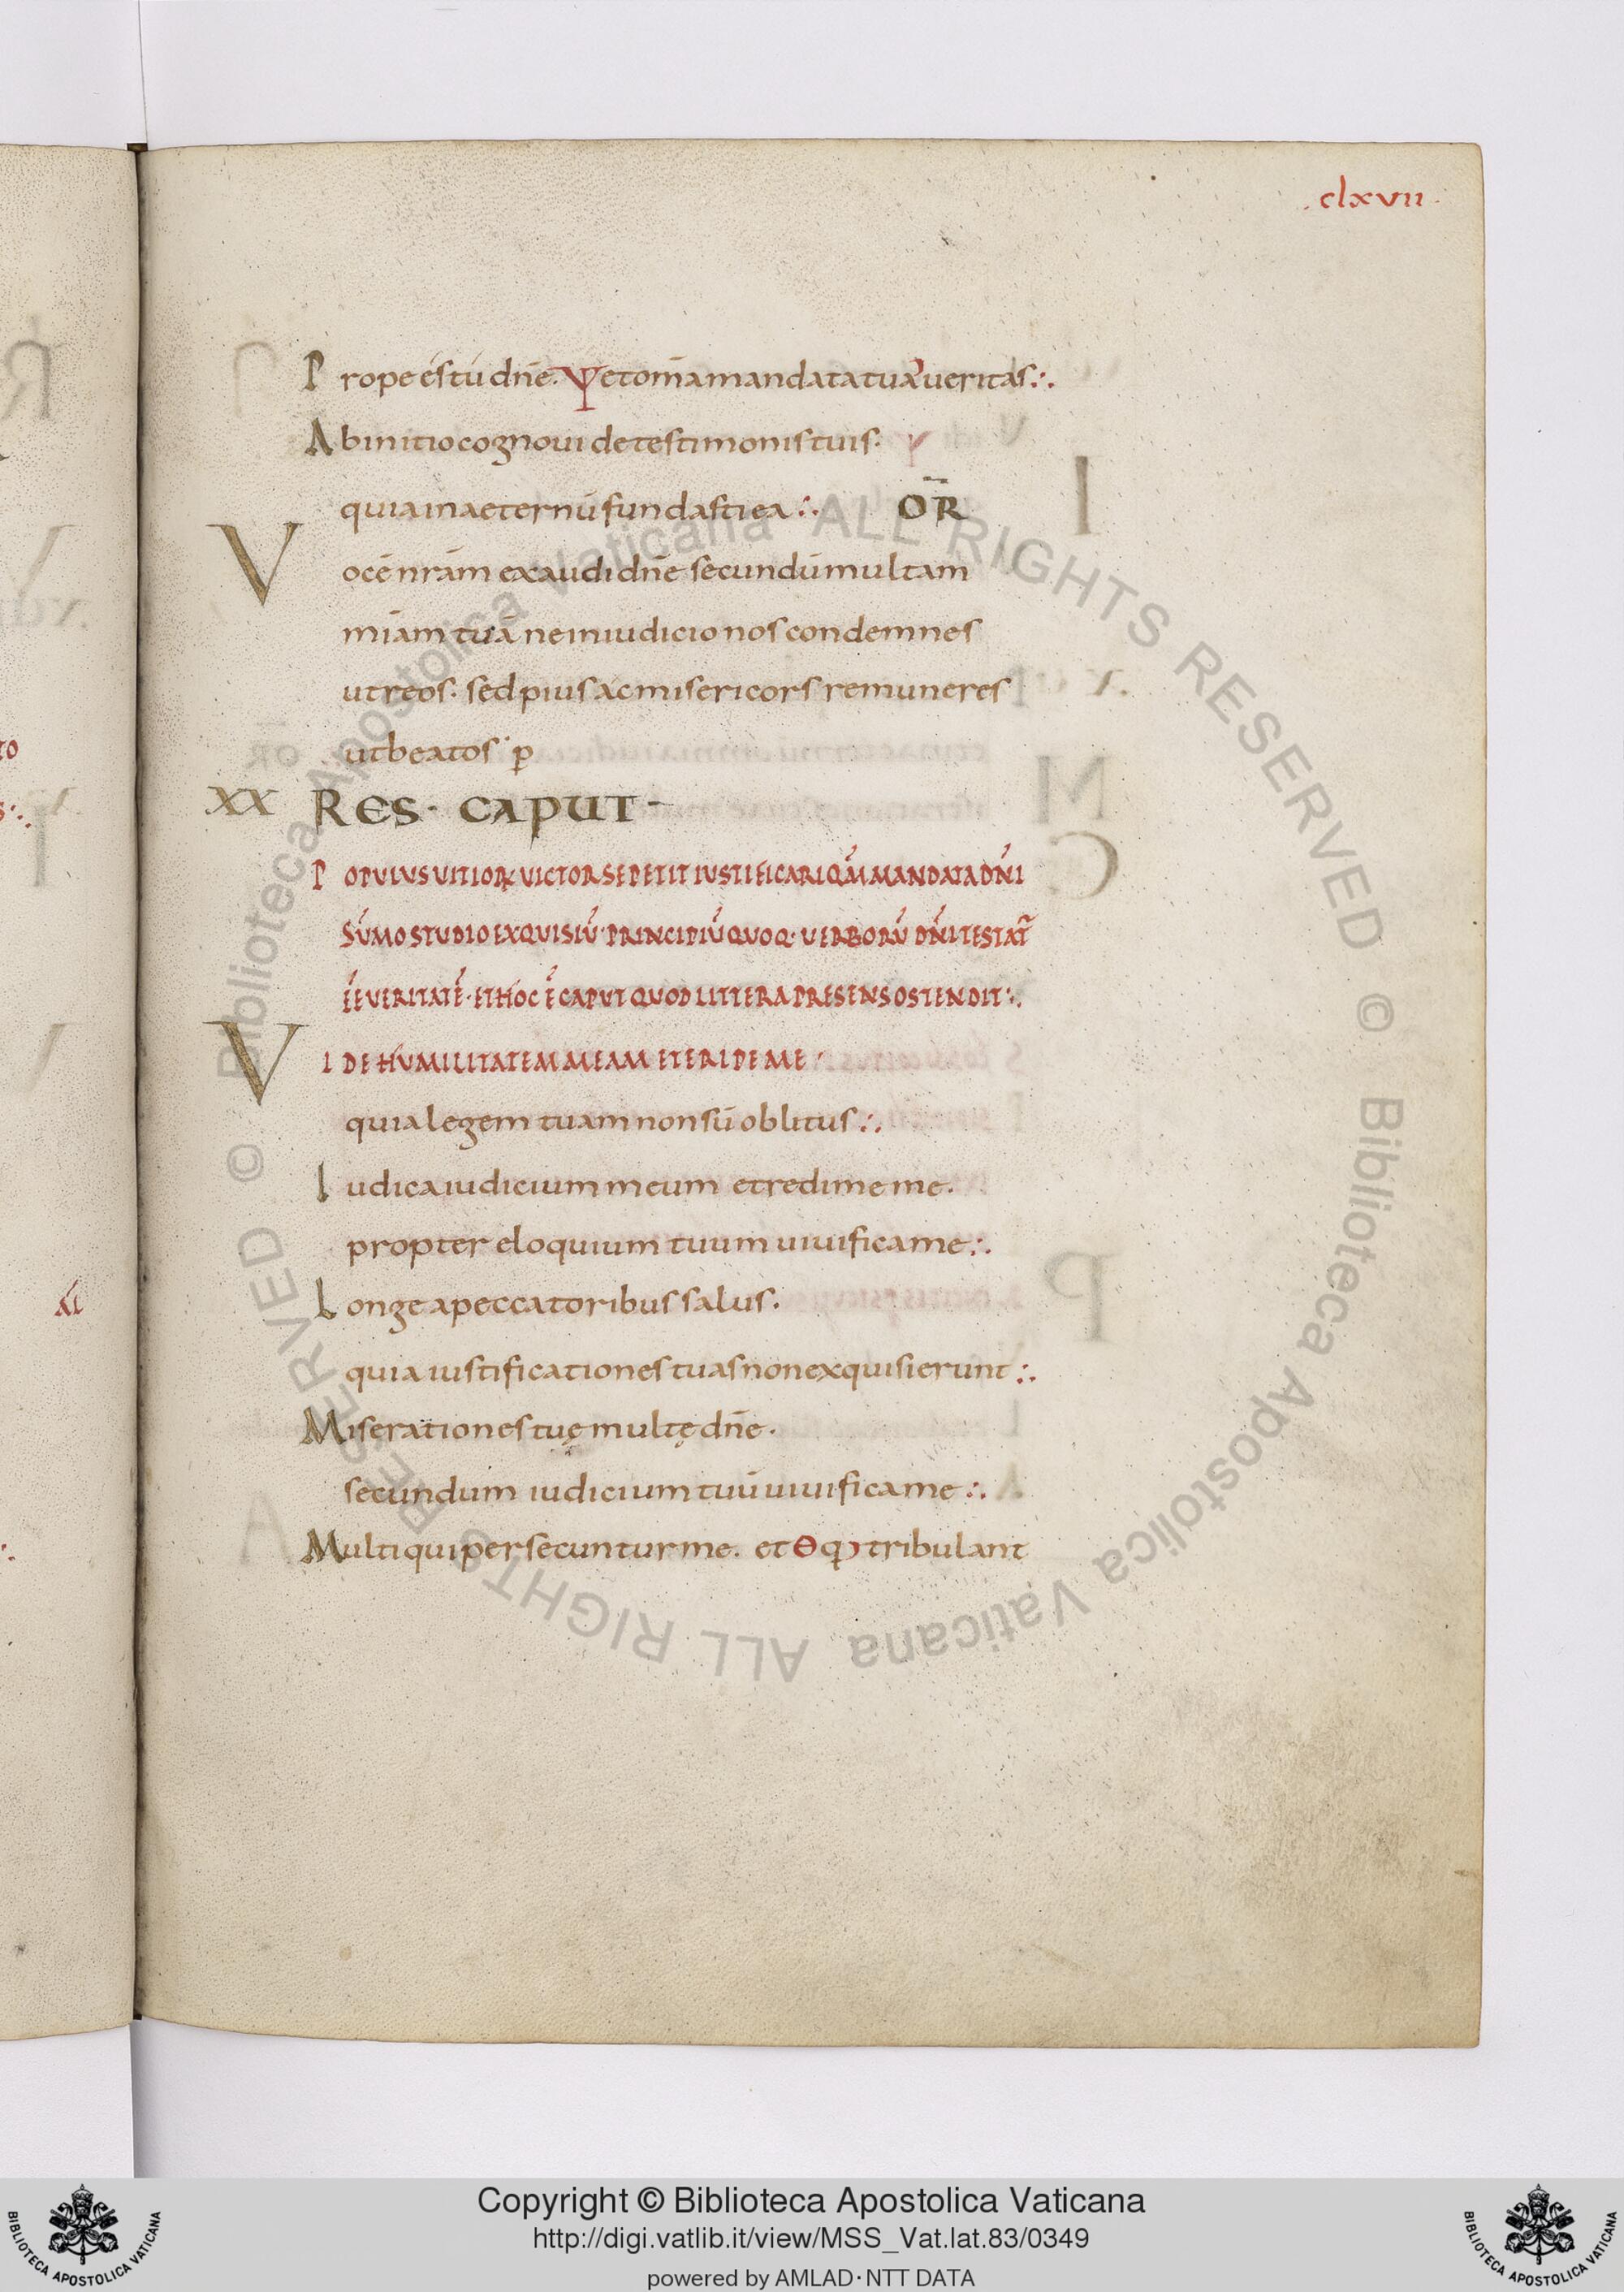 . clxvii .
Prope es tu dn̄e. Ψ et om̄a mandata tua ueritas :.
Ab initio cognoui de testimoniis tuis. Ψ
quia in aeternū fundasti ea :. OR̄
Vocē nr̄am exaudi dn̄e secundū multam
mīam tuā ne in iudicio nos condemnes
ut reos. sed pius ac misericors remuneres
ut beatos. p̄
XX RES. CAPUT -
POPULUS UITIOR UICTOR SE PETIT IUSTIFICARI QM̄ MANDATA DN̄I
SŪMO STUDIO EXQUISIU̅. PRINCIPIŪ QUOQ. UERBORŪ DN̄I TESTAT̄
EE̅ UERITATĒ. ET HOC Ē CAPUT QUOD LITTERA PRESENS OSTENDIT :.
VIDE HUMILITATEM MEAM ET ERIPE ME.
quia legem tuam non sū oblitus :.
Iudica iudicium meum et redime me.
propter eloquium tuum uiuifica me :.
Longe a peccatoribus salus.
quia iustificationes tuas non exquisierunt :.
Miserationes tuę multę dn̄e.
secundum iudicium tuū uiuifica me :.
Multi qui persecuntur me. et Θ q tribulant
Copyright © Biblioteca Apostolica Vaticana
http://digi.vatlib.it/view/MSS_Vat.lat.83/0349
powered by AMLAD·NTT DATA
BIBLIOTECA APOSTOLICA VATICANA
BIBLIOTECA APOSTOLICA VATICANA
© Biblioteca Apostolica Vaticana ALL RIGHTS RESERVED
© Biblioteca Apostolica Vaticana ALL RIGHTS RESERVED